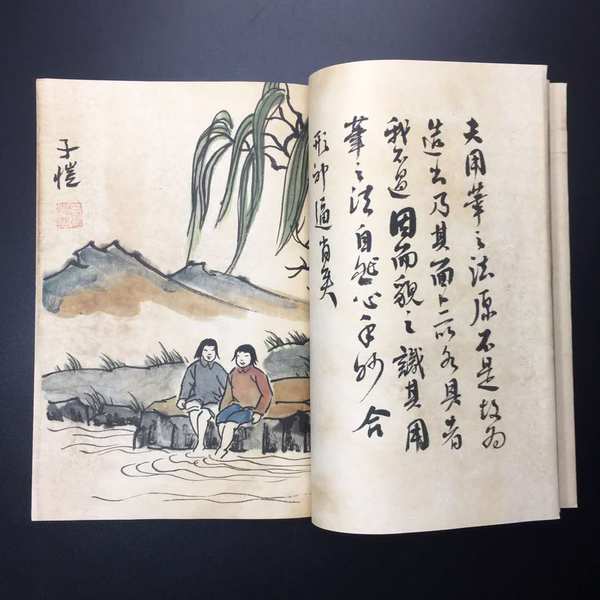 夫用筆之法原不是故为
造出乃其面上所以各具者
我不過因而貌之識其用
筆之法自然心手妙合
形神逼肖矣
子愷